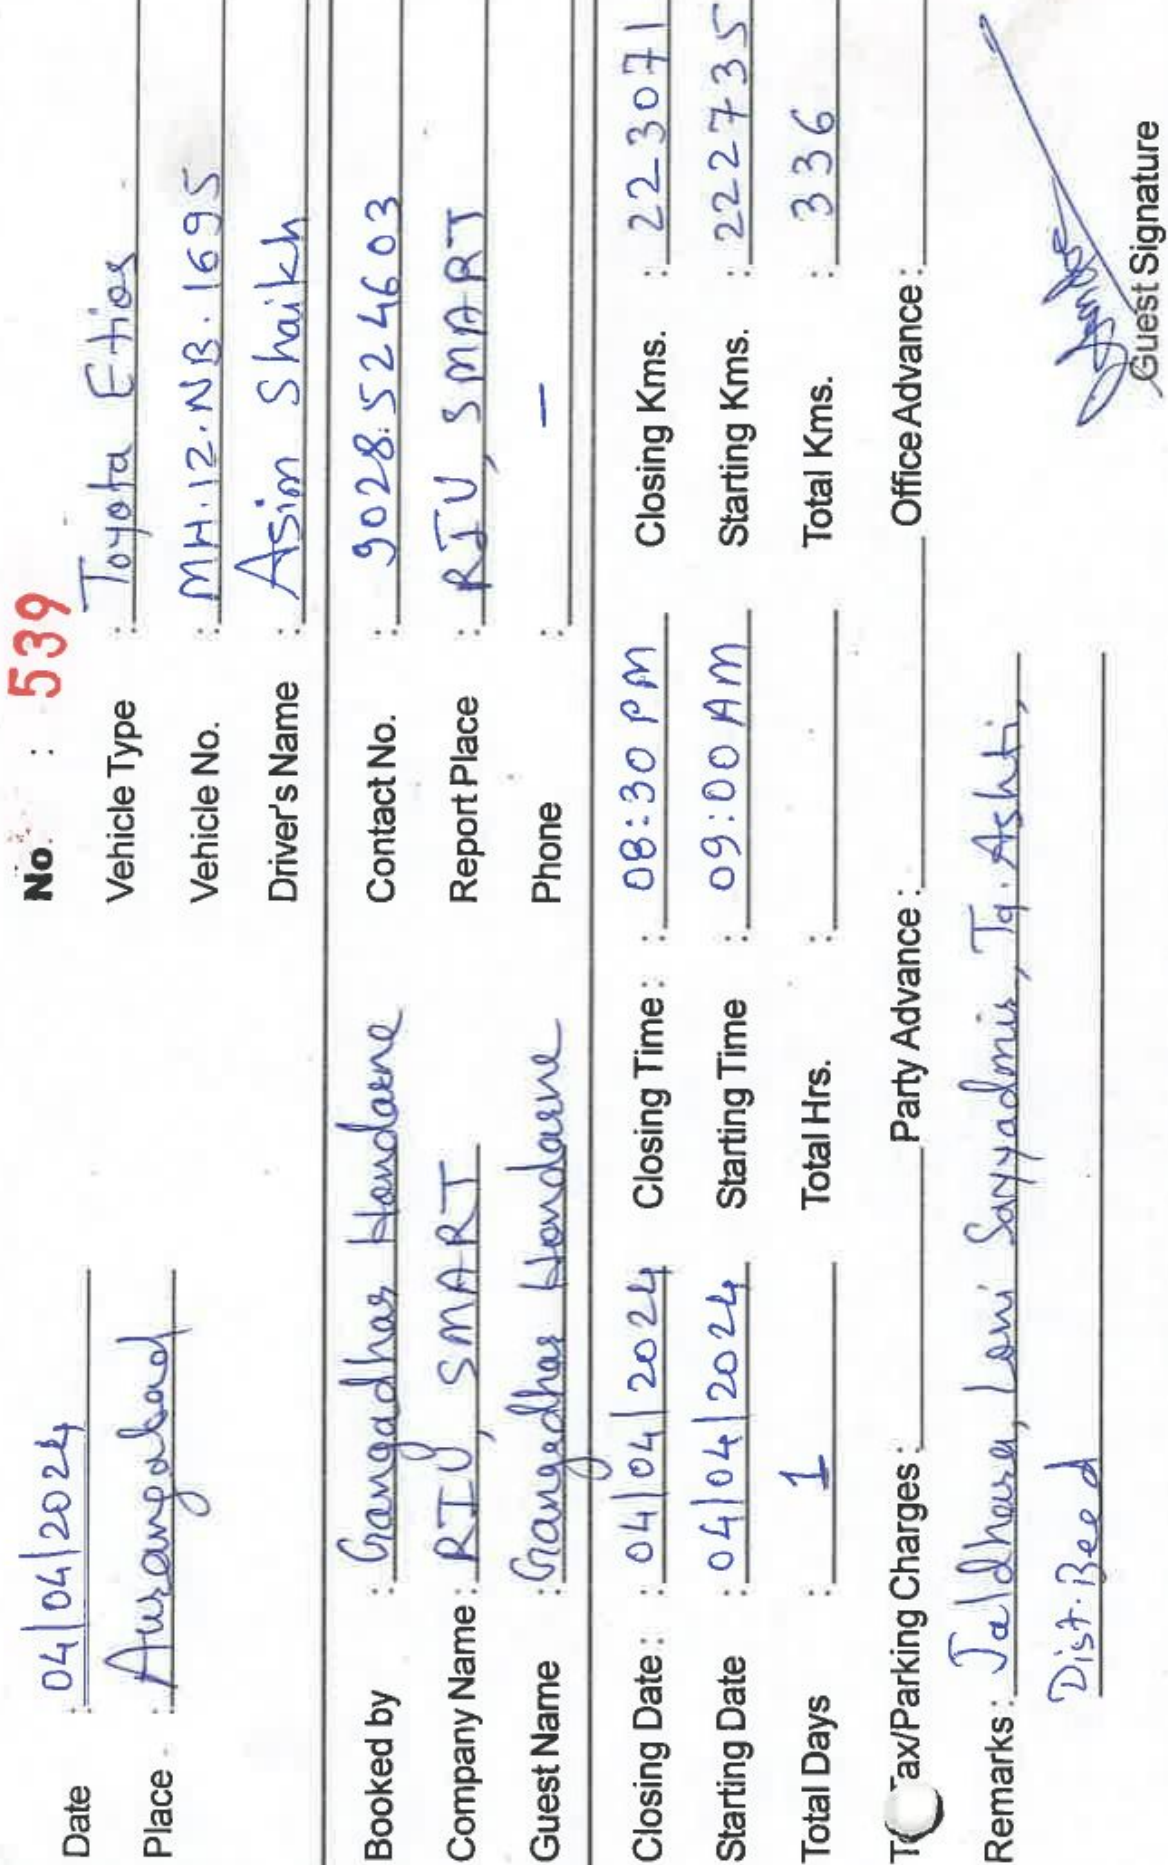 No. : 539
Date : 04/04/2024 Vehicle Type : Toyota Etios
Place : Aurangabad Vehicle No. : MH.12.NB.1695
Driver's Name : Asim Shaikh
Booked by : Gangadhar Handarne Contact No. : 9028524603
Company Name : RIU, SMART Report Place : RIU, SMART
Guest Name : Gangadhar Handarne Phone : —
Closing Date : 04/04/2024 Closing Time : 08:30 PM Closing Kms. : 223071
Starting Date : 04/04/2024 Starting Time : 09:00 AM Starting Kms. : 222735
Total Days : 1 Total Hrs. : Total Kms. : 336
Tax/Parking Charges : Party Advance : Office Advance :
Remarks : Jaldhara, Loni Sayyadmir, Tq. Ashti,
Dist. Beed
Guest Signature